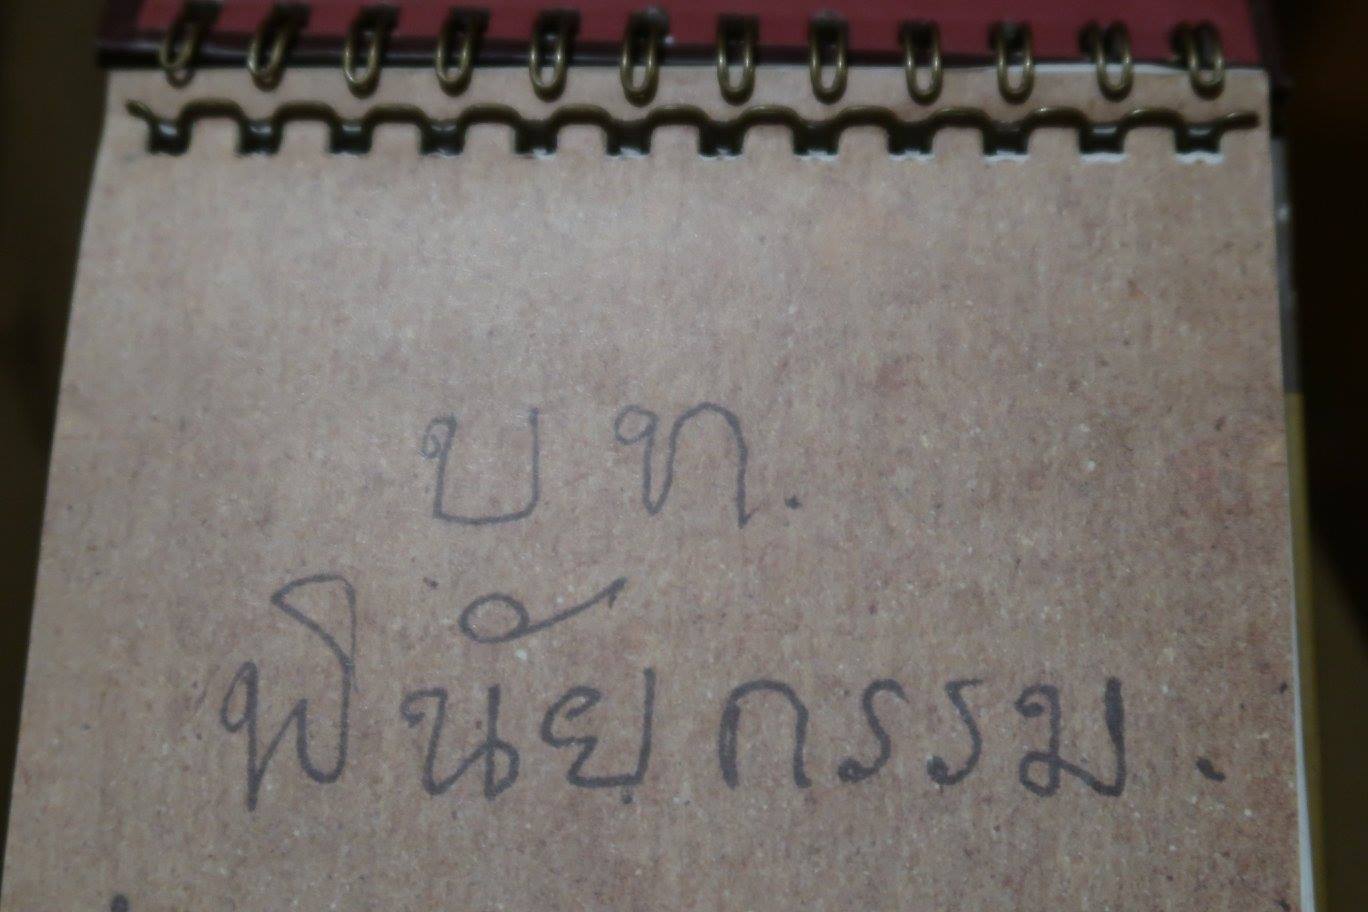 บท.
พินัยกรรม.